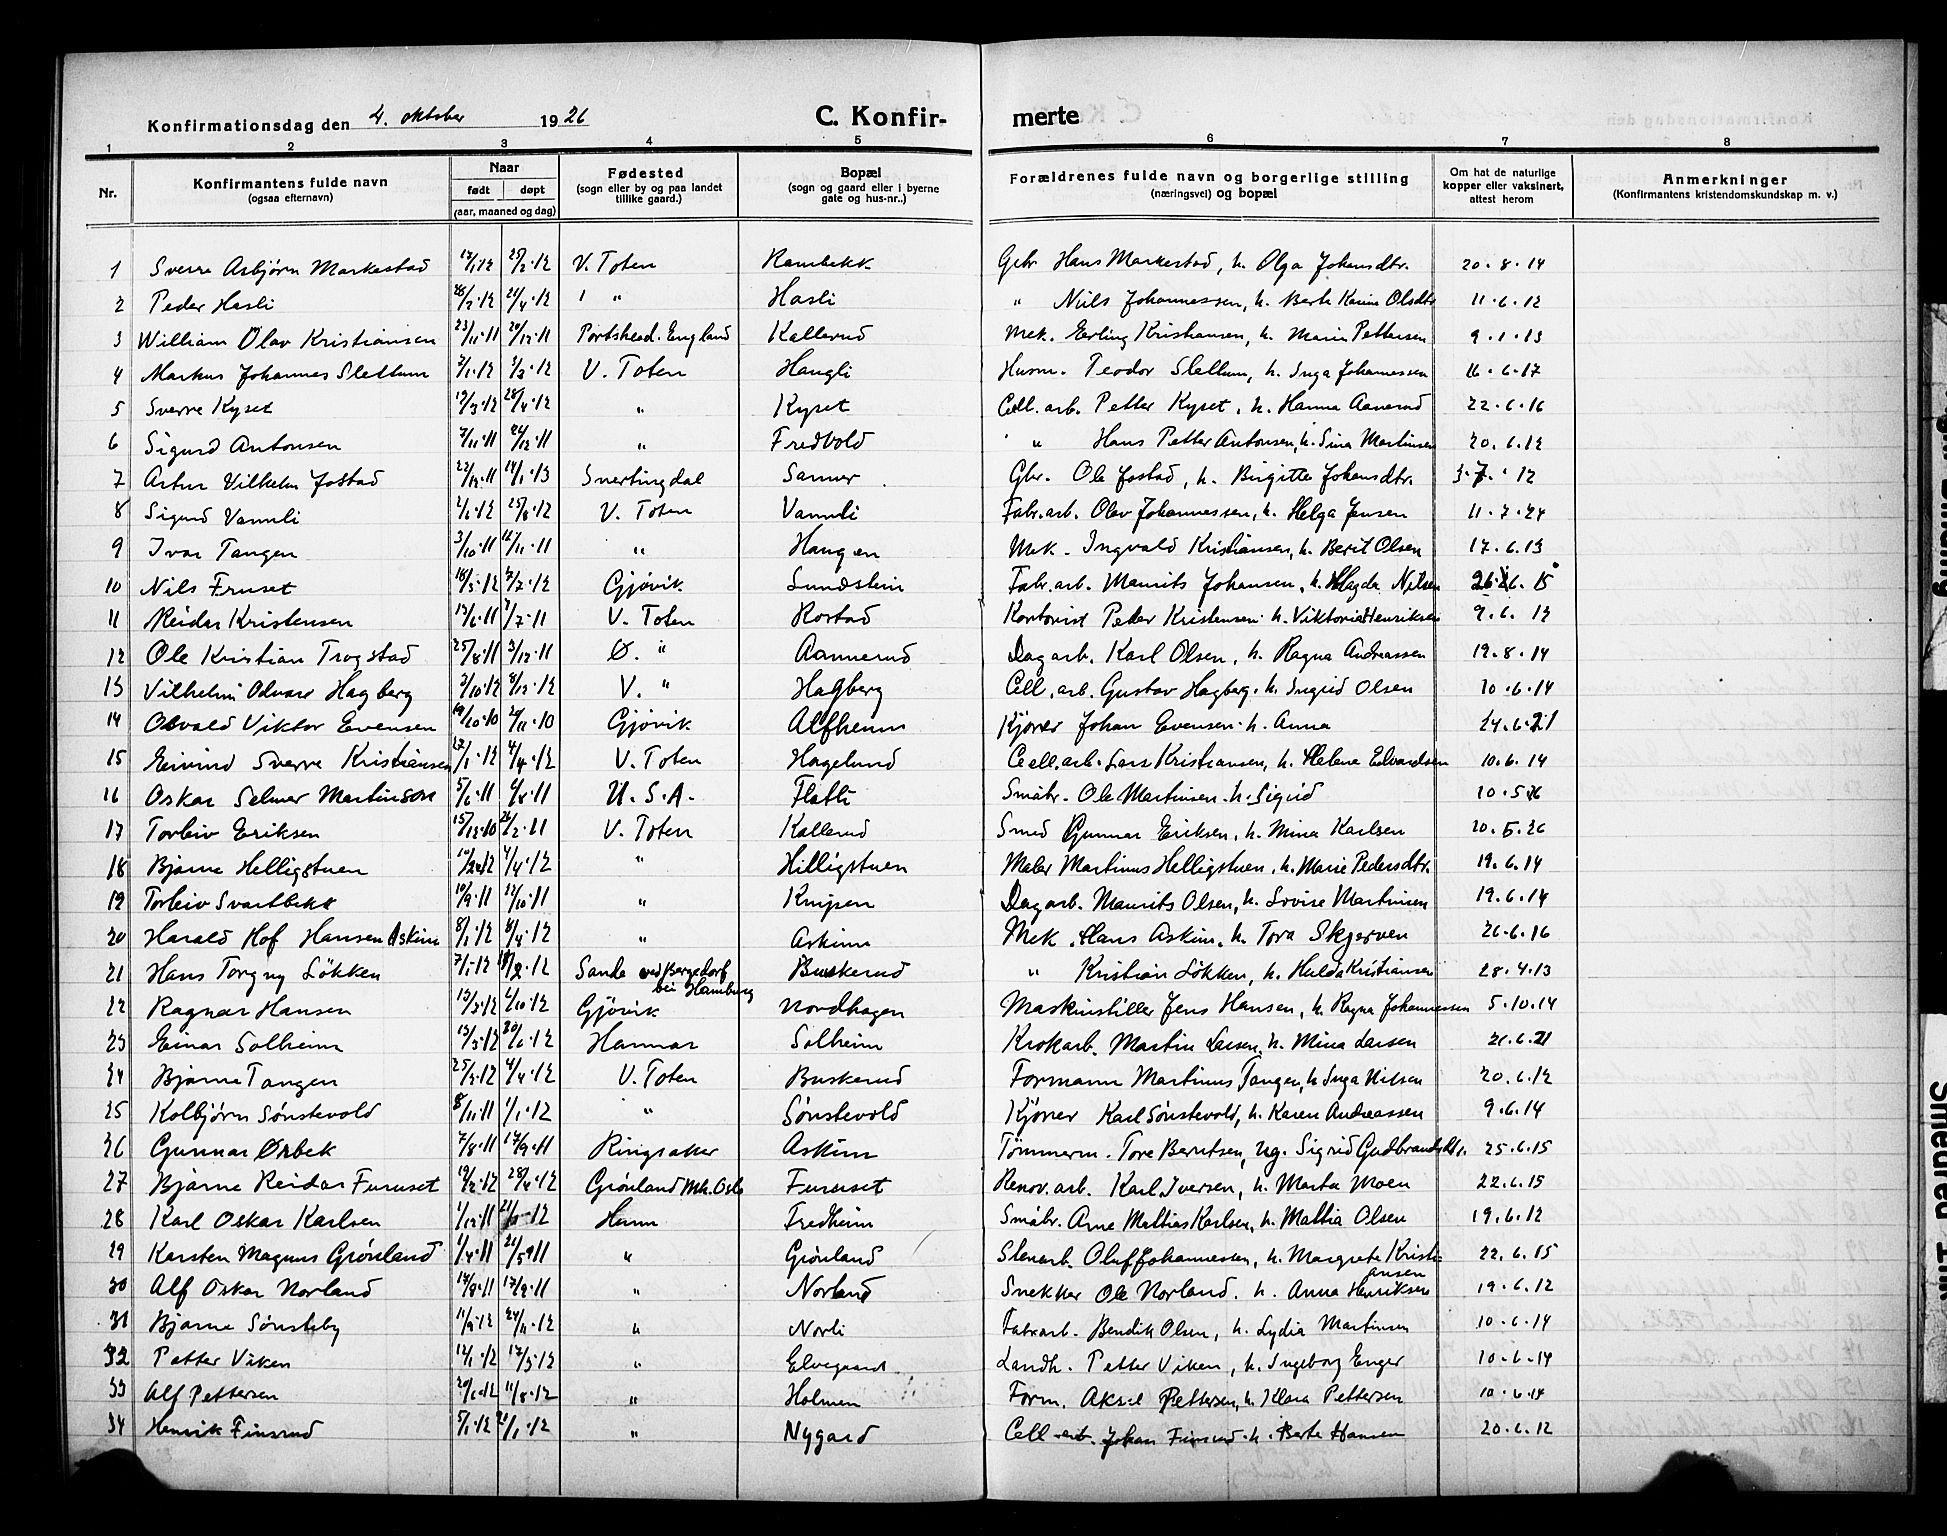 Konfirmationsdag den 4. oktober 1926 C. Konfir- merte
1 2 3 4 5 6 7 8
Nr. Konfirmantens fulde navn (ogsaa efternavn) Naar født døpt (aar, maaned og dag) Fødested (sogn eller by og paa landet tillike gaard.) Bopæl (sogn og gaard eller i byerne gate og hus-nr..) Forældrenes fulde navn og borgerlige stilling (næringsvei) og bopæl Om hat de naturlige kopper eller vaksinert, attest herom Anmerkninger (Konfirmantens kristendomskundskap m. v.)
1 Sverre Asbjørn Markestad 25/2.12 V. Toten Rambekk Gbr Hans Markestad, h. Olga Johansdtr. 20.8.14
2 Peder Hasli 21/4.12 " Hasli " Nils Johannessen, h. Berte Karine Olsdtr 11.6.12
3 William Olav Kristiansen 23/11.11 Portshead. England Kallerud Mek. Erling Kristiansen, h. Marie Pettersen 9.1.13
4 Markus Johannes Slettum V. Toten Haugli Husm. Peodor Slettum, h. Inga Johannessen 16.6.17
5 Sverre Kyset 28/4.12 " Kyset Cell. arb. Petter Kyset, h. Hanna Aanerud 22.6.16
6 Sigurd Antonsen 7/11.11 26/12.11 " Fredvold " Hans Petter Antonsen, h. Sina Martinsen 20.6.12
7 Artur Vilhelm Jostad 14/1.13 Snertingdal Sanner Gbr. Ole Jostad, h. Birgitte Johansdtr. 3.7.12
8 Sigurd Vannli 25/8.12 V. Toten Vannli Fabr.arb. Olav Johannessen, h. Helga Jensen 11.7.24
9 Ivar Tangen 3/10.11 12/11.11 " Haugen Mek. Ingvald Kristiansen, h. Berit Olsen 17.6.13
10 Nils Fruset 18/5.12 7/7.12 Gjøvik Sundstein Fabr.arb. Maurits Johansen, h. Magda Nilsen
11 Reidar Kristensen 13/6.11 7/7.11 V. Toten Rostad Kontorist Peder Kristensen h. Viktoria Henriksen 9.6.12
12 Ole Kristian Trogstad 25/8.11 3/12.11 Ø. " Aannerud Dagarb. Karl Olsen, h. Ragna Andreassen 19.8.14
13 Vilhelm Odvar Hagberg 2/10.12 8/12.12 V. " Hagberg Cell. arb. Gustav Hagberg. h. Ingrid Olsen 10.6.14
14 Osvald Viktor Evensen 19/10.10 Gjøvik Alfheim Kjører Johan Evensen. h. Anna 24.6.21
15 Eivind Sverre Kristiansen 27/1.12 4/4.12 V. Toten Hagelund Cell.arb. Lars Kristiansen, h. Helene Edvardsen 10.6.14
16 Oskar Selmer Martinson 5/6.11 6/8.11 U.S.A. Flatli Småbr. Ole Martinsen. h. Sigrid 10.5.16
17 Torleiv Eriksen 15/12.10 26/2.11 V. Toten Kallerud Smed Gunnar Eriksen, h. Mina Karlsen 20.5.26
18 Bjarne Helligstuen 4/4.12 " Hilligstuen Maler Martinus Helligstuen, h. Marie Pedersdtr. 19.6.14
19 Torleiv Svartbekk 10/9.11 12/10.11 " Knipen Dagarb. Maurits Olsen, h. Lovise Martinsen 19.6.14
20 Harald Hof Hansen Askim 8/1.12 8/4.12 " Askim Mek. Hans Askim, h. Tora Skjerven 26.6.16
21 Hans Torgny Løkken 7/1.12 Sande ved Bergedorf bei Hamburg Buskerud " Kristian Løkken, h. Hulda Kristiansen 28.4.13
22 Ragnar Hansen 13/3.12 6/10.12 Gjøvik Nordhagen Maskinstiller Jens Hansen, h. Ragna Johannessen 5.10.14
23 Einar Solheim 13/3.12 30/6.12 Hamar Solheim Krokarb. Martin Larsen, h. Mina Larsen 21.6.21
24 Bjarne Tangen 25/3.12 4/4.12 V. Toten Buskerud Formann Martinus Tangen, h. Inga Nilsen 20.6.12
25 Kolbjørn Sønstevold 8/11.11 1/1.12 " Sønstevold Kjører Karl Sønstevold, h. Karen Andreassen 9.6.14
26 Gunnar Ørbek 7/8.11 17/9.11 Ringsaker Askim Tømmerm. Tore Berntsen, ug. Sigrid Gudbrandsdtr. 25.6.15
27 Bjarne Reidar Furuset 19/2.12 28/4.12 Grønland Mh. Oslo Furuset Renov.arb. Karl Iversen, h. Marta Moen 22.6.15
28 Karl Oskar Karlsen 1/12.11 Hunn Fredheim Småbr. Arne Mattias Karlsen, h. Mattia Olsen 19.6.12
29 Karsten Magnus Grønland 1/4.11 21/5.11 " Grønland Stenarb. Oluf Johannessen, h. Margrete Kristiansen 22.6.15
30 Alf Oskar Norland 14/8.11 17/9.11 " Norland Snekker Ole Norland. h. Anna Henriksen 19.6.12
31 Bjarne Sønsteby 11/9.12 24/11.12 " Norli Fabrarb. Bendik Olsen, h. Lydia Martinsen 10.6.14
32 Petter Viken 12/1.12 17/3.12 " Elvegaard Landh. Petter Viken, h. Ingeborg Enger 10.6.14
33 Alf Pettersen 20/6.12 11/8.12 " Holmen Form. Aksel Pettersen, h. Klara Pettersen 10.6.14
34 Henrik Finsrud 5/1.12 21/1.12 " Nygard Cell arb. Johan Finsrud. h. Berte Hansen 20.6.12